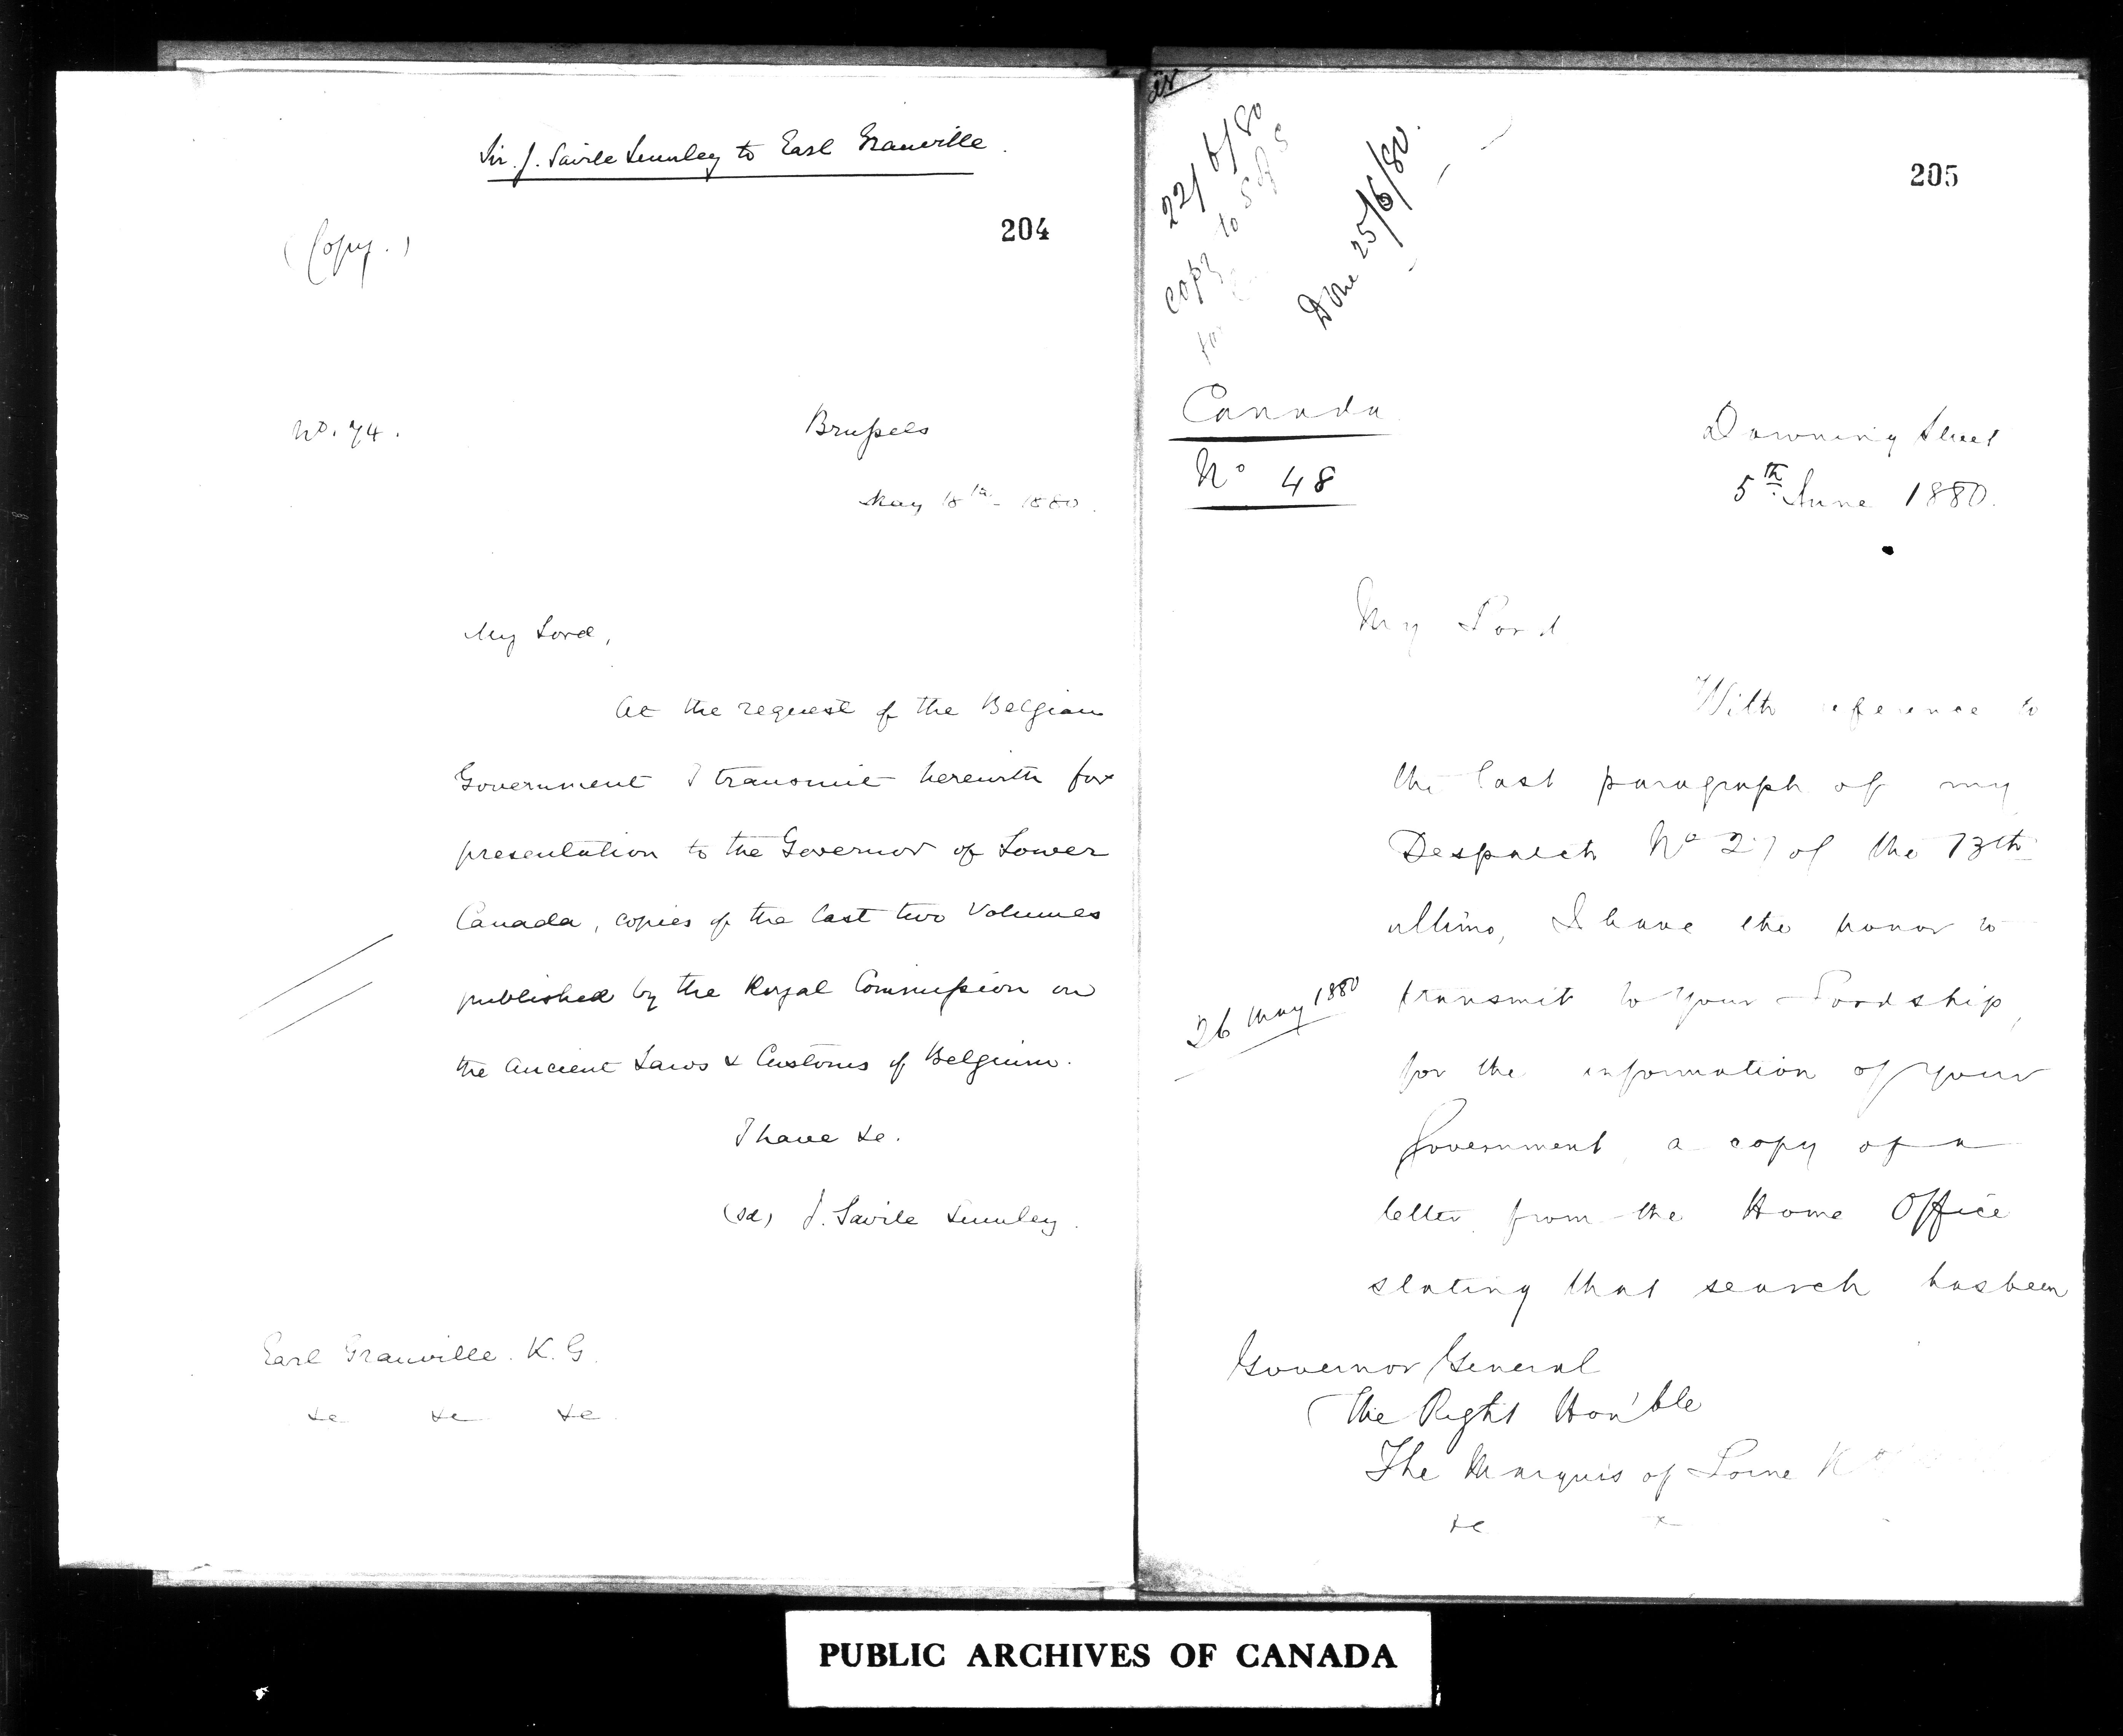 Sir. J. Savile Lumley to Earl Granville.
204
(Copy.)
No. 74.
Brussels
May 18th - 1880.
My Lord,
At the request of the Belgian
Government I transmit herewith for
presentation to the Governor of Lower
Canada, copies of the last two Volumes
published by the Royal Commission on
the Ancient Laws & Customs of Belgium.
I have &c.
(sd) J. Savile Lumley.
Earl Granville. K.G.
&c &c &c
205
22/6/80
copy to S of S
for
Done 25/6/80.
Canada
No 48
Downing Street
5th June 1880.
My Lord
With reference to
the last paragraph of my
Despatch No 27 of the 13th
ultimo, I have the honor to
26 May 1880
transmit to Your Lordship,
for the information of your
Government, a copy of a
letter from the Home Office
stating that search has been
Governor General
The Right Hon'ble
The Marquis of Lorne
&c
PUBLIC ARCHIVES OF CANADA